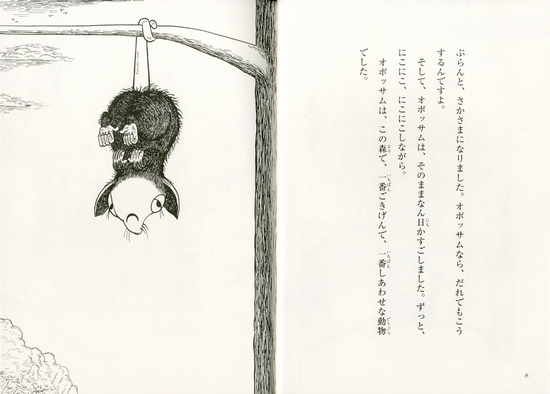 ぶらんと、さかさまになりました。オポッサムなら、だれでもこう
するんですよ。
そして、オポッサムは、そのままなん日かすごしました。ずっと、
にこにこ、にこにこしながら。
オポッサムは、この森で、一番ごきげんで、一番しあわせな動物
でした。
8